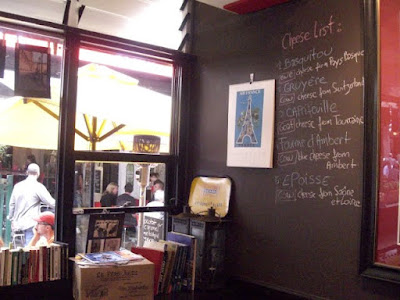 Cheese List:
Basquitou
Ewe cheese from Pays Basque
Gruyère
Cow cheese from Switzerland
CAPRifeuille
Goat cheese from Touraine
Fourme d'Ambert
Cow blue cheese from
Ambert
EPoisse
Cow cheese from Saône
et Loire